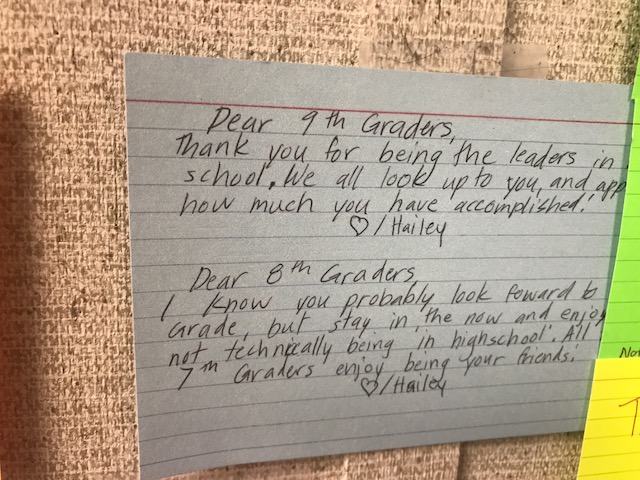 Dear 9th Graders,
Thank you for being the leaders in
school. We all look up to you, and app
how much you have accomplished!
♡/Hailey
Dear 8th Graders
I know you probably look foward to
Grade, but stay in the now and enjoy
not technically being in highschool. All
7th Graders enjoy being your friends.
♡/Hailey
No
T